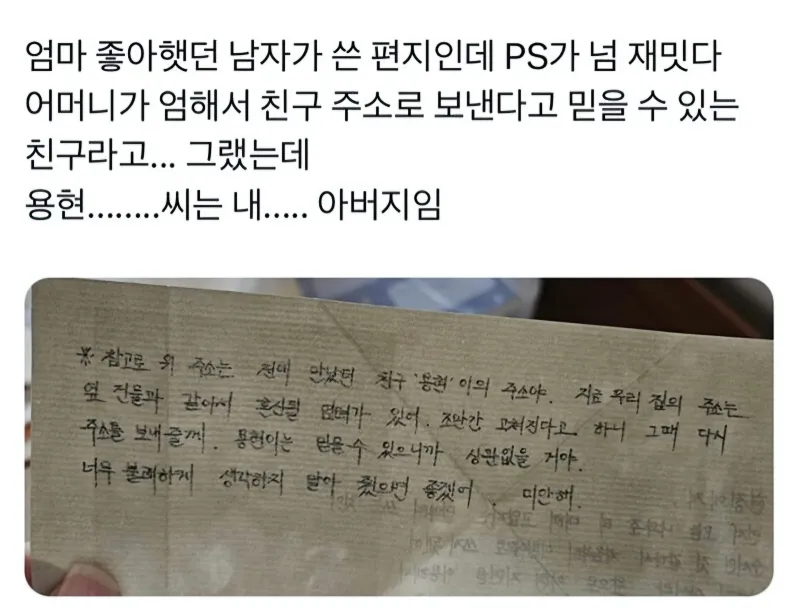 엄마 좋아햇던 남자가 쓴 편지인데 PS가 넘 재밋다
어머니가 엄해서 친구 주소로 보낸다고 믿을 수 있는
친구라고... 그랬는데
용현........씨는 내..... 아버지임
※ 참고로 위 주소는 전에 만났던 친구 '용현'이의 주소야. 지금 우리 집의 주소는
옆 건물과 같아서 혼신될 염려가 있어. 조만간 고쳐진다고 하니 그때 다시
주소를 보내줄께. 용현이는 믿을 수 있으니까 상관없을 거야.
너무 불쾌하게 생각하지 말아 줬으면 좋겠어. 미안해.